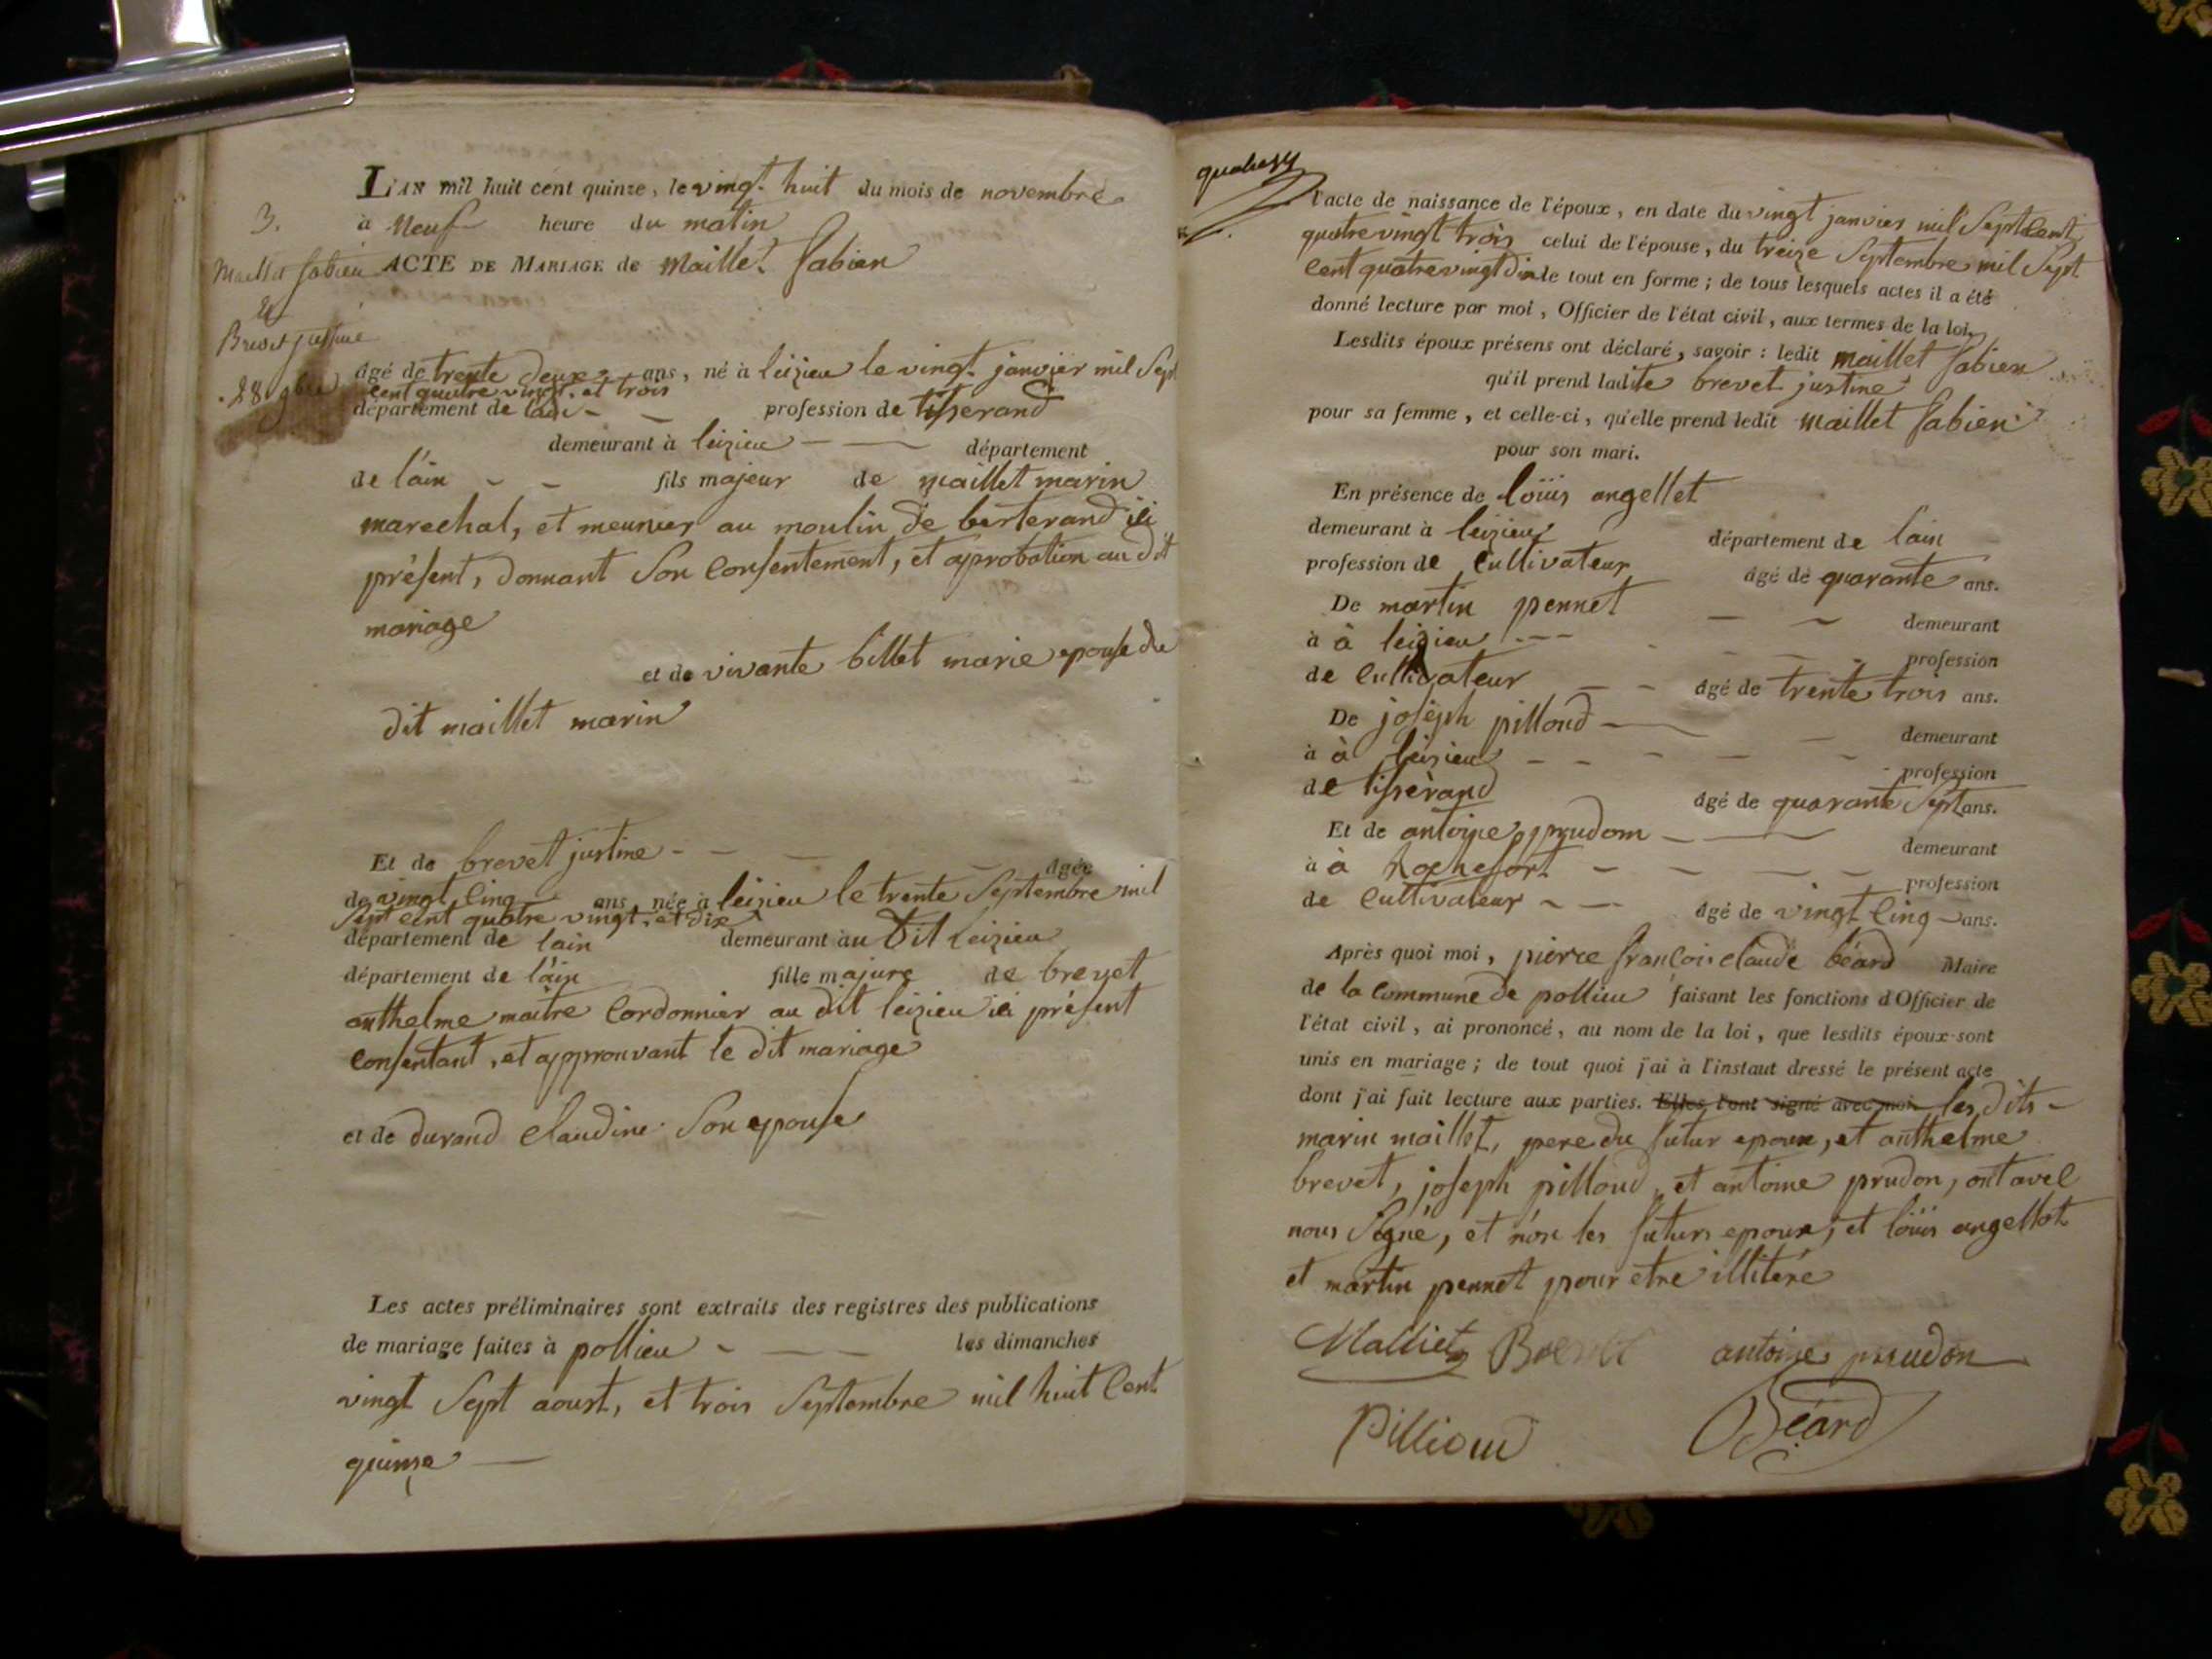 3.
maillet fabien
et
Brevet justine
28 9bre
L'AN mil huit cent quinze, le vingt huit du mois de novembre
à neuf heure du matin
ACTE DE MARIAGE de maillet fabien
âgé de trente deux ans, né à leizieu le vingt janvier mil sept
cent quatre vingt et trois
département de l'ain - - profession de tisserand
demeurant à leizieu - — département
de l'ain - - fils majeur de maillet marin
marechal, et meunier au moulin de berterand ici
présent, donnant son consentement, et aprobation au dit
mariage
et de vivante billet marie epouse du
dit maillet marin
Et de brevet justine - - — - âgée
de vingt cinq ans, née à leizieu le trente septembre mil
sept cent quatre vingt et dix
département de lain demeurant au dit leizieu
département de l'ain fille majure de brevet
anthelme maitre cordonnier au dit leizieu ici présent
consentant, et approuvant le dit mariage
et de durand claudine son epouse
Les actes préliminaires sont extraits des registres des publications
de mariage faites à pollieu - — — les dimanches
vingt sept aoust, et trois septembre mil huit cent
quinze —
l'acte de naissance de l'époux, en date du vingt janvier mil sept cent
quatre vingt trois celui de l'épouse, du treize septembre mil sept
cent quatre vingt dix le tout en forme ; de tous lesquels actes il a été
donné lecture par moi, Officier de l'état civil, aux termes de la loi.
Lesdits époux présens ont déclaré, savoir : ledit maillet fabien
qu'il prend ladite brevet justine
pour sa femme, et celle-ci, qu'elle prend ledit maillet fabien
pour son mari.
En présence de loüis angellet
demeurant à leizieu département de lain
profession de cultivateur âgé de quarante ans.
De martin pennet — - demeurant
à à leizieu - - - profession
de cultivateur - - âgé de trente trois ans.
De joseph pilloud — — demeurant
à à leizieu - - - - - profession
de tisserand âgé de quarante sept ans.
Et de antoine prudom - — demeurant
à à Rochefort - - - - profession
de cultivateur - — âgé de vingt cinq - ans.
Après quoi moi, pierre françois claude béard Maire
de la commune de pollieu faisant les fonctions d'Officier de
l'état civil, ai prononcé, au nom de la loi, que lesdits époux sont
unis en mariage ; de tout quoi j'ai à l'instant dressé le présent acte
dont j'ai fait lecture aux parties. Elles l'ont signé avec moi les dits -
marin maillet, pere du futur epoux, et anthelme
brevet, joseph pilloud, et antoine prudon, ont avec
nous signé, et non les futurs epoux, et loüis angellot
et martin pennet pour etre illiteré
Malliet Brevet antoine prudon
Pillioud Béard